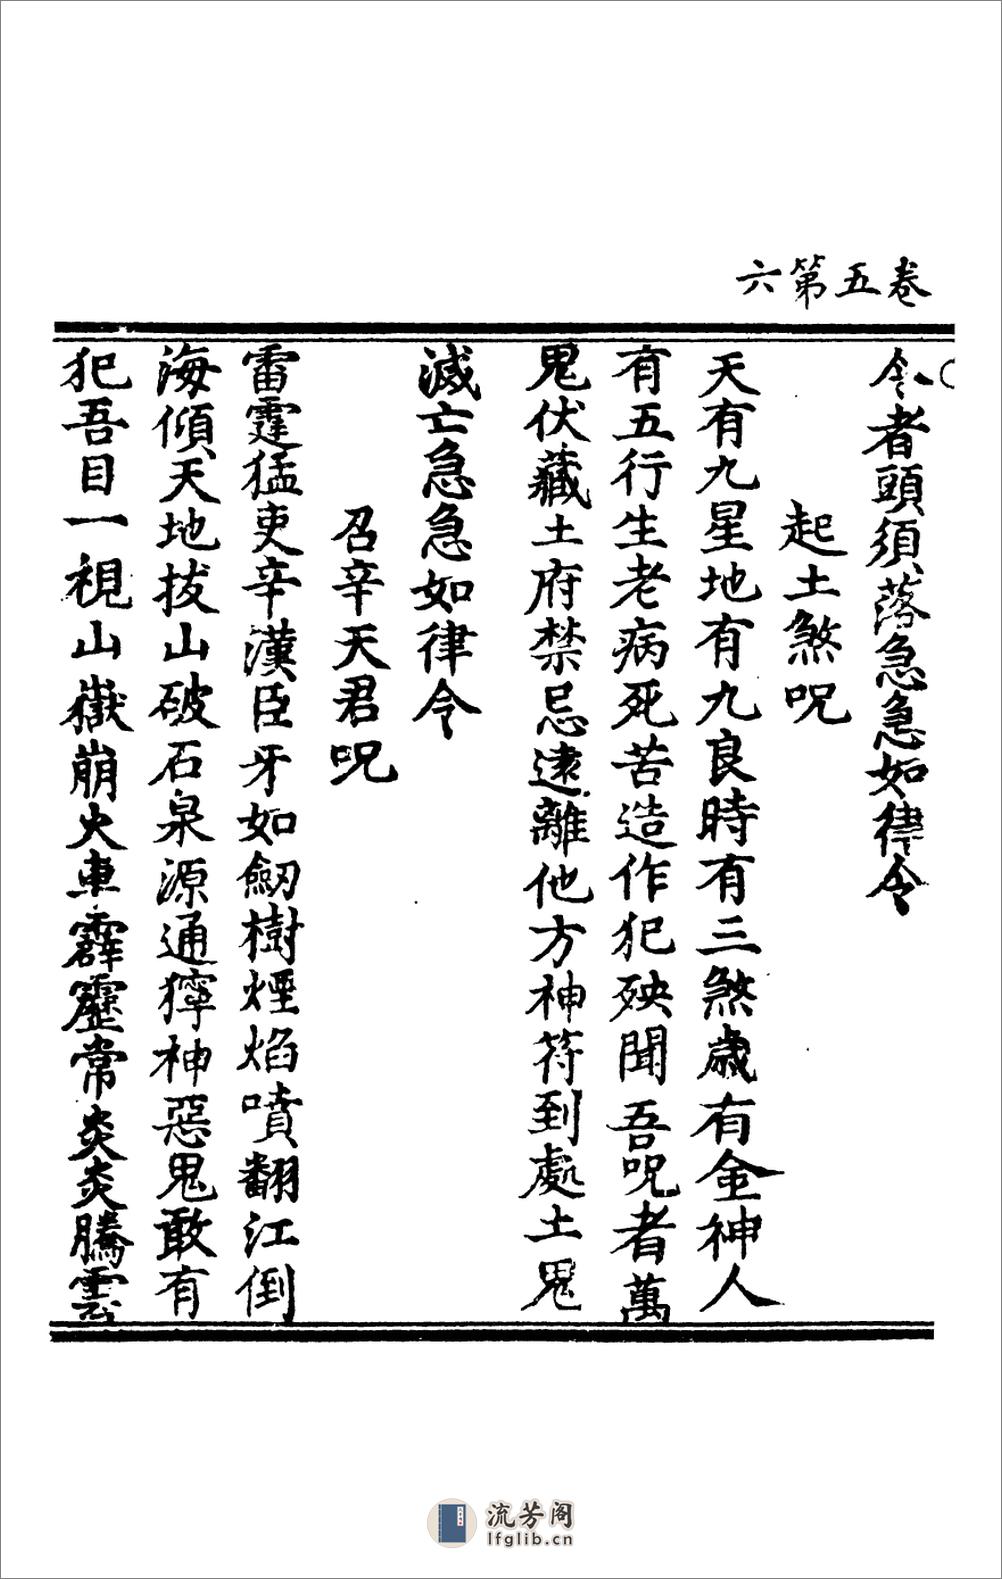 卷五第六
令者頭須落急急如律令
起土煞呪
天有九星地有九良時有三煞歲有金神人
有五行生老病死苦造作犯殃聞吾呪者萬
鬼伏藏土府禁忌遠離他方神符到處土鬼
滅亡急急如律令
召辛天君呪
雷霆猛吏辛漢臣牙如劒樹煙焰噴翻江倒
海傾天地拔山破石泉源通獰神惡鬼敢有
犯吾目一視山嶽崩火車霹靂常炎炎騰雲
流芳阁
lfglib.cn